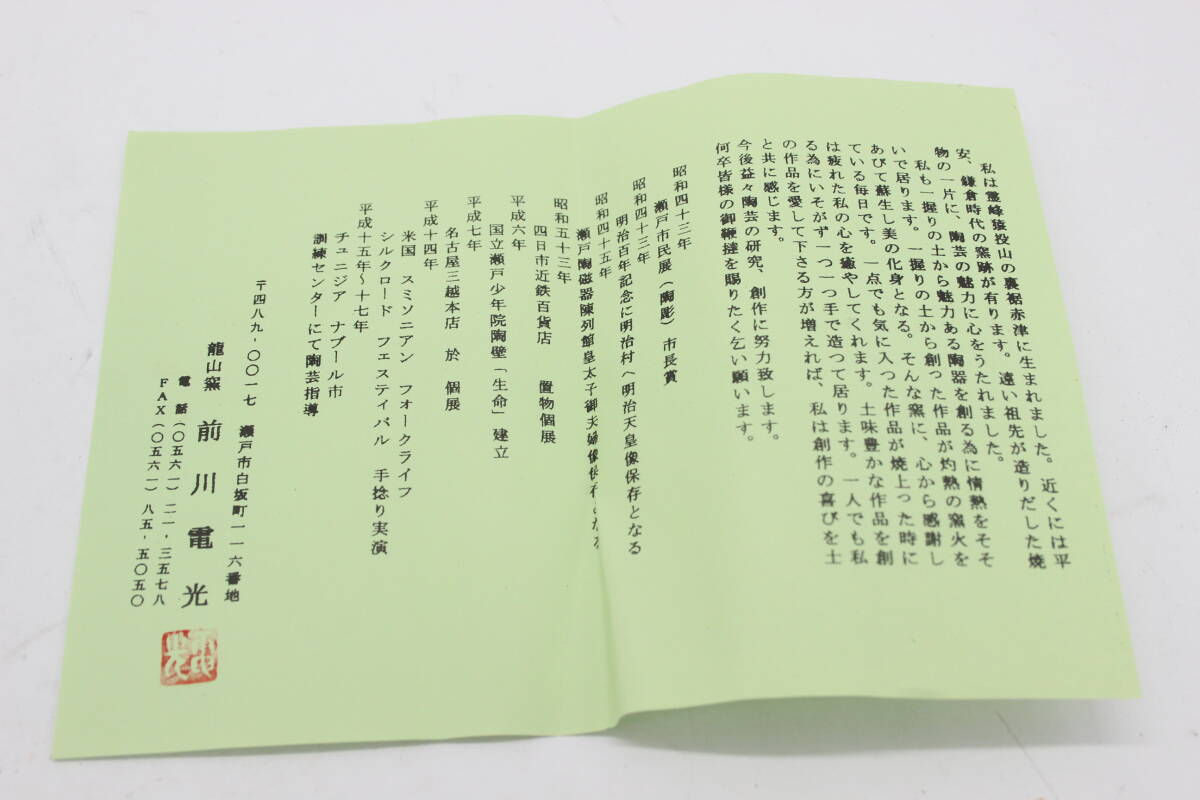 私は霊峰猿投山の裏裾赤津に生まれました。近くには平
安、鎌倉時代の窯跡が有ります。遠い祖先が造りだした焼
物の一片に、陶芸の魅力に心をうたれました。
私も一握りの土から魅力ある陶器を創る為に情熱をそそ
いで居ります。一握りの土から創った作品が灼熱の窯火を
あびて蘇生し美の化身となる。そんな窯に、心から感謝し
ている毎日です。一点でも気に入った作品が焼上った時に
は疲れた私の心を癒やしてくれます。土味豊かな作品を創
る為にいそがず一つ一つ手で造って居ります。一人でも私
の作品を愛して下さる方が増えれば、私は創作の喜びを土
と共に感じます。
今後益々陶芸の研究、創作に努力致します。
何卒皆様の御鞭撻を賜りたく乞い願います。
昭和四十三年
瀬戸市民展（陶彫）市長賞
昭和四十三年
明治百年記念に明治村へ明治天皇像保存となる
昭和四十五年
瀬戸陶磁器陳列館皇太子御夫婦像保存となる
昭和五十三年
四日市近鉄百貨店 置物個展
平成六年
国立瀬戸少年院陶壁「生命」建立
平成七年
名古屋三越本店 於 個展
平成十四年
米国 スミソニアン フォークライフ
シルクロード フェスティバル 手捻り実演
平成十五年～十七年
チュニジア ナブール市
訓練センターにて陶芸指導
〒四八九-〇〇一七 瀬戸市白坂町一一六番地
龍山窯 前川電光
電話（〇五六一）二一-三五七八
FAX（〇五六一）八五-五〇五〇